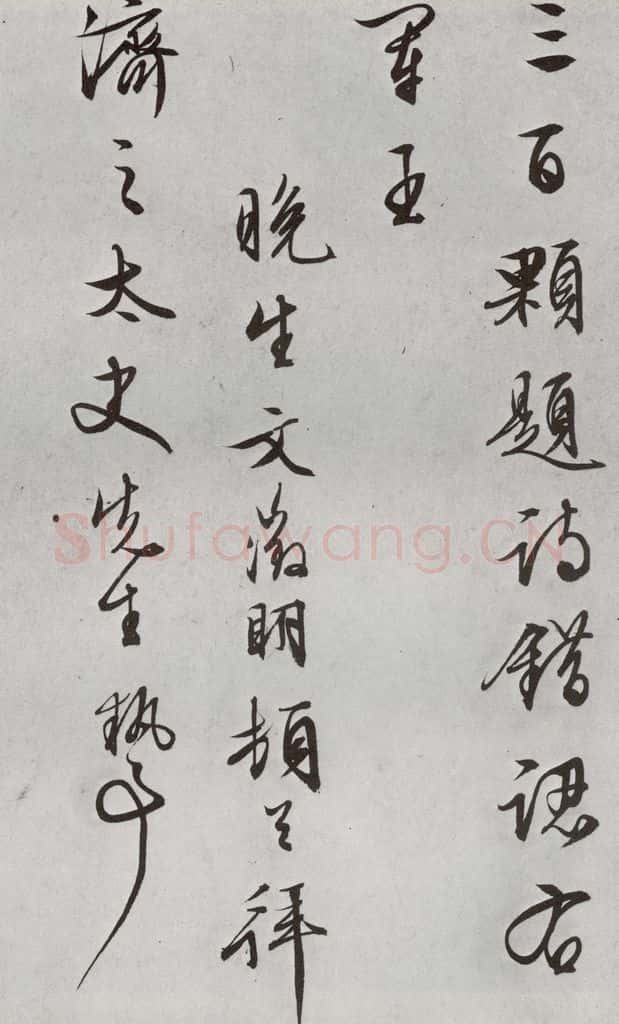 三百顆題詩錯認右
軍王
晚生文徵明頓首拜
濟之太史先生執事
Shufawang.CN